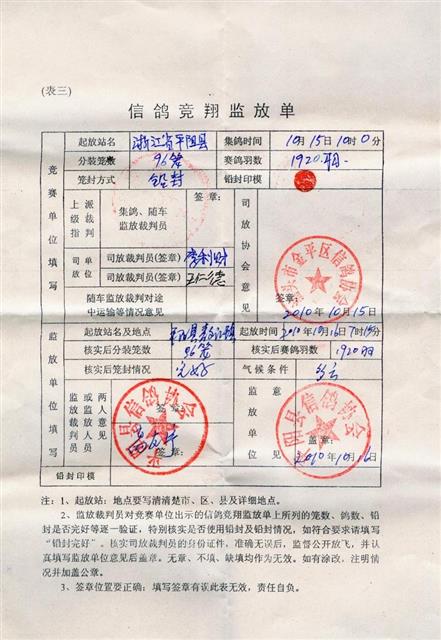 (表三)
信鸽竞翔监放单
起放站名 浙江省平阳县 集鸽时间 10月15日10时0分
分装笼数 96笼 赛鸽羽数 1920羽
笼封方式 铅封 铅封印模
竞赛单位填写
上级指派裁判
集鸽、随车监放裁判员
签章:
司放单位
司放裁判员(签章)
司放裁判员(签章) 王仁德
随车监放裁判对途中运输等情况意见
司放协会意见
汕头市金平区信鸽协会
签章:
2010年10月15日
监放单位填写
起放站名及地点 起放时间 2010年10月16日7时15分
核实后分装笼数 96笼 核实后赛鸽羽数 1920羽
核实后笼封情况 完好 气候条件 多云
监放或裁两判人员意见
签章:
平阳县信鸽协会
监放单位意见
平阳县信鸽协会
盖章:
2010年10月16日
铅封印模
注：1、起放站：地点要写清清楚市、区、县及详细地点。
2、监放裁判员对竞赛单位出示的信鸽竞翔监放单上所列的笼数、鸽数、铅
封是否完好等逐一验证，特别核实是否使用铅封及铅封情况，如符合要求请填写
“铅封完好”。核实司放裁判员的身份证件，准确无误后，监督公开放飞，并认
真填写监放单位意见后盖章。无章、不填、缺填均作为无效。如有涂改，注明情
况并加盖公章。
3、签章位置要正确：填写签章有误此表无效，责任自负。